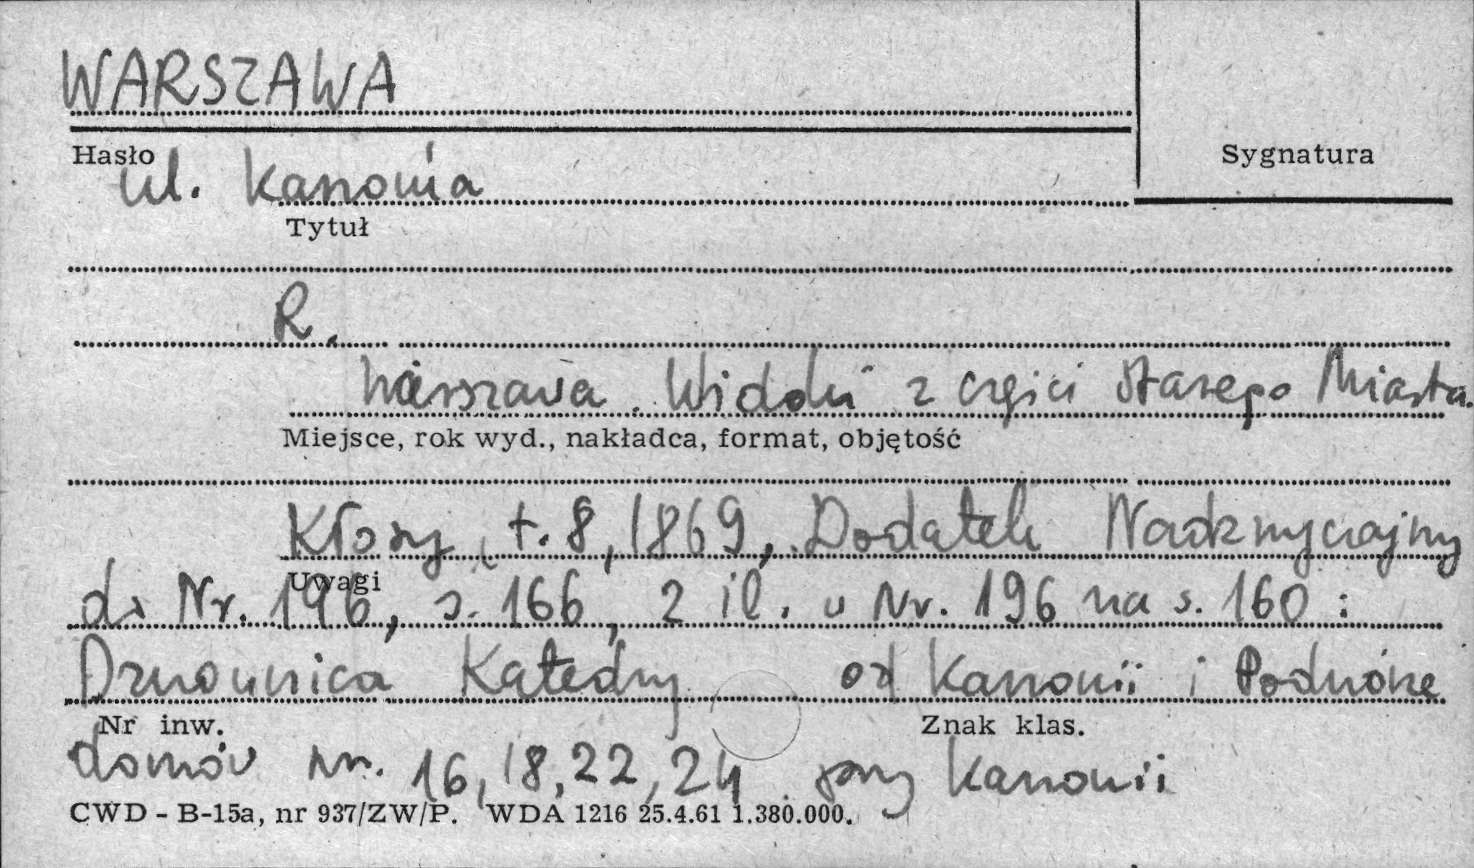 WARSZAWA
Hasło
Sygnatura
ul. Kanonia
Tytuł
R.
Warszawa. Widoki z części Starego Miasta.
Miejsce, rok wyd., nakładca, format, objętość
Kłosy, t. 8, 1869, Dodatek Nadzwyczajny
Uwagi
do Nr. 196, s. 166, 2 il. w Nr. 196 na s. 160 :
Dzwonnica Katedry od Kanonii i Podwórze
Nr inw.
Znak klas.
domów nr. 16, 18, 22, 24 przy Kanonii
CWD - B-15a, nr 937/ZW/P. WDA 1216 25.4.61 1.380.000.